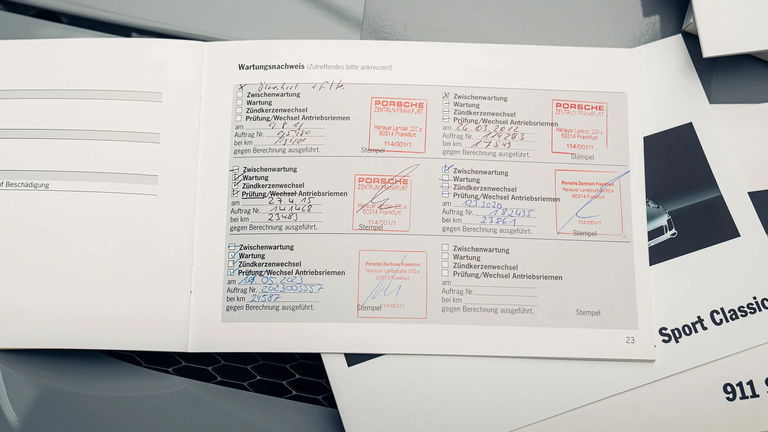 f Beschädigung
Wartungsnachweis (Zutreffendes bitte ankreuzen!)
x + Filter
Zwischenwartung
Wartung
Zündkerzenwechsel
Prüfung/Wechsel Antriebsriemen
am
Auftrag Nr.
bei km
gegen Berechnung ausgeführt.
PORSCHE
ZENTRUM FRANKFURT
Hanauer Landstr. 220 a
60314 Frankfurt
114/001/1
Stempel
x Zwischenwartung
Wartung
Zündkerzenwechsel
Prüfung/Wechsel Antriebsriemen
am 26.03.2012
Auftrag Nr. 114283
bei km 17549
gegen Berechnung ausgeführt.
PORSCHE
ZENTRUM FRANKFURT
Hanauer Landstr. 220 a
60314 Frankfurt
114/001/1
Stempel
Zwischenwartung
Wartung
Zündkerzenwechsel
Prüfung/Wechsel Antriebsriemen
am 27.4.15
Auftrag Nr. 141468
bei km 23483
gegen Berechnung ausgeführt.
PORSCHE
ZENTRUM FRANKFURT
Hanauer Landstr. 220 a
60314 Frankfurt
114/001/1
Stempel
Zwischenwartung
Wartung
Zündkerzenwechsel
Prüfung/Wechsel Antriebsriemen
am
Auftrag Nr. 182435
bei km 23861
gegen Berechnung ausgeführt.
Porsche Zentrum Frankfurt
60314 Frankfurt
114/001/1
Stempel
Zwischenwartung
Wartung
Zündkerzenwechsel
Prüfung/Wechsel Antriebsriemen
am 11.05.2023
Auftrag Nr.
bei km 24587
gegen Berechnung ausgeführt.
Porsche Zentrum Frankfurt
60314 Frankfurt
114/001/1
Stempel
Zwischenwartung
Wartung
Zündkerzenwechsel
Prüfung/Wechsel Antriebsriemen
am
Auftrag Nr.
bei km
gegen Berechnung ausgeführt.
Stempel
23
Sport Classic
911 S